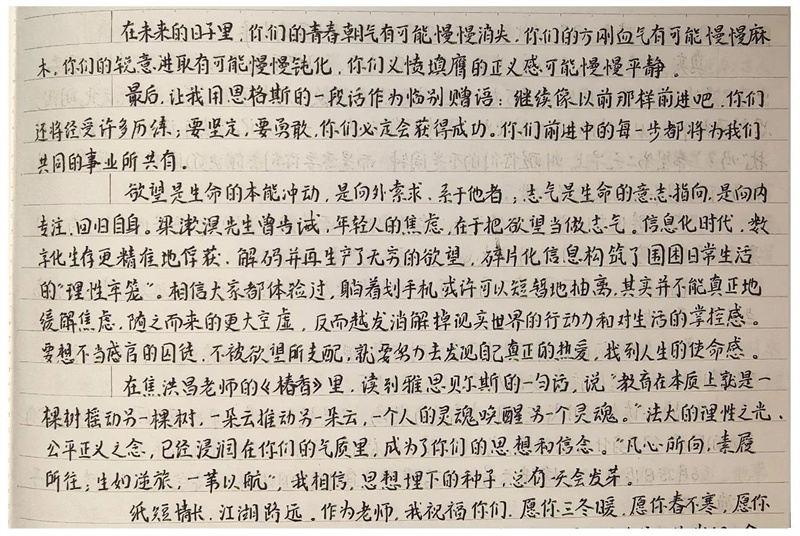 在未来的日子里，你们的青春朝气有可能慢慢消失，你们的方刚血气有可能慢慢麻
木，你们的锐意进取有可能慢慢钝化，你们义愤填膺的正义感可能慢慢平静。
最后，让我用恩格斯的一段话作为临别赠语：继续像以前那样前进吧，你们
还将经受许多历练；要坚定，要勇敢，你们必定会获得成功。你们前进中的每一步都将为我们
共同的事业所共有。
欲望是生命的本能冲动，是向外索求，系于他者；志气是生命的意志指向，是向内
专注，回归自身。梁漱溟先生曾告诫，年轻人的焦虑，在于把欲望当做志气。信息化时代，数
字化生存更精准地俘获、解码并再生产了无穷的欲望，碎片化信息构筑了围困日常生活
的“理性牢笼”。相信大家都体验过，躺着划手机或许可以短暂地抽离，其实并不能真正地
缓解焦虑，随之而来的更大空虚，反而越发消解掉现实世界的行动力和对生活的掌控感。
要想不当感官的囚徒，不被欲望所支配，就要努力去发现自己真正的热爱，找到人生的使命感。
在焦洪昌老师的《椿香》里，读到雅思贝尔斯的一句话，说“教育在本质上就是一
棵树摇动另一棵树，一朵云推动另一朵云，一个人的灵魂唤醒另一个灵魂。”法大的理性之光、
公平正义之念，已经浸润在你们的气质里，成为了你们的思想和信念。“凡心所向，素履
所往；生如逆旅，一苇以航”，我相信，思想埋下的种子，总有一天会发芽。
纸短情长，江湖路远。作为老师，我祝福你们，愿你三冬暖，愿你春不寒，愿你